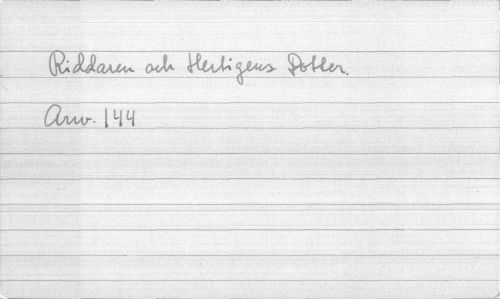 Riddaren och Hertigens Dotter.
Arw. 144